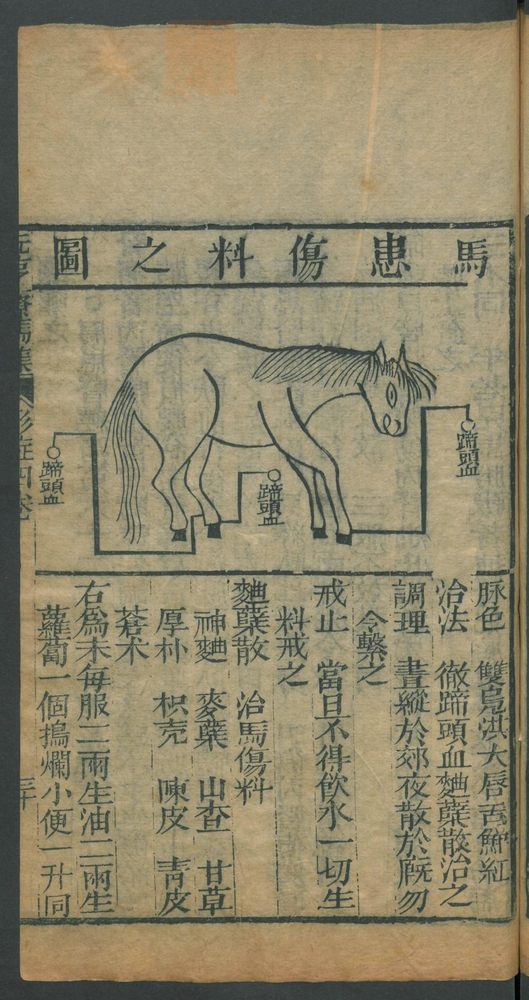 馬患傷料之圖
蹄頭血
蹄頭血
蹄頭血
脉色　雙鳧洪大唇舌鮮紅
治法　徹蹄頭血麯蘖散治之
調理　晝縱於郊夜散於厩勿
令繫之
戒止　當日不得飲水一切生
料戒之
麯蘖散　治馬傷料
神麯　麥蘖　山查　甘草
厚朴　枳壳　陳皮　青皮
蒼术
右為末每服二兩生油二兩生
蘿蔔一個搗爛小便一升同
馬集　形症四卷
三十